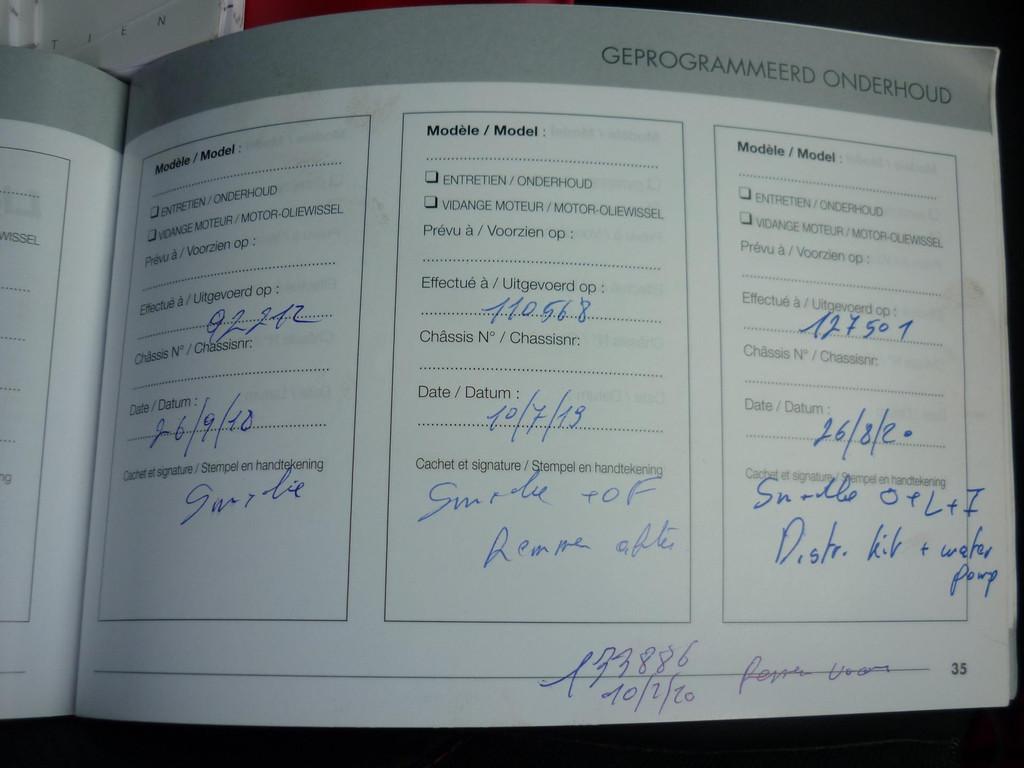 T I E N
GEPROGRAMMEERD ONDERHOUD
WISSEL
ng
Modèle / Model :
❑ ENTRETIEN / ONDERHOUD
❑ VIDANGE MOTEUR / MOTOR-OLIEWISSEL
Prévu à / Voorzien op :
Effectué à / Uitgevoerd op :
92212
Châssis N° / Chassisnr:
Date / Datum :
26/9/18
Cachet et signature / Stempel en handtekening
Modèle / Model :
❑ ENTRETIEN / ONDERHOUD
❑ VIDANGE MOTEUR / MOTOR-OLIEWISSEL
Prévu à / Voorzien op :
Effectué à / Uitgevoerd op :
110568
Châssis N° / Chassisnr:
Date / Datum :
10/7/19
Cachet et signature / Stempel en handtekening
+ O F
Remmen
Modèle / Model :
❑ ENTRETIEN / ONDERHOUD
❑ VIDANGE MOTEUR / MOTOR-OLIEWISSEL
Prévu à / Voorzien op :
Effectué à / Uitgevoerd op :
127501
Châssis N° / Chassisnr:
Date / Datum :
26/8/20
Cachet et signature / Stempel en handtekening
O+L+I
Distr. kit + water
pomp
133886
10/2/20
35